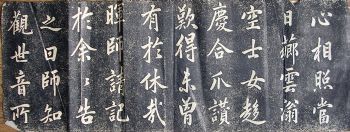 心相照當
日薌雲滃
空士女趍
慶合爪讚
歎得未曾
有於休哉
師請記
於余〻告
之曰師知
觀世音所